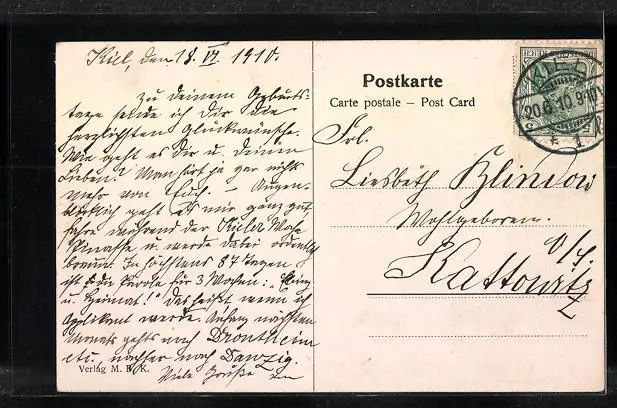 Kiel, den 18. VI. 1910.
Zu deinem Geburts-
tage sende ich dir die
herzlichsten Glückwünsche.
Wie geht es dir u. deinen
Lieben? Man hört ja gar nichts
mehr von Euch. Augen-
blicklich geht es mir ganz gut
fahre während der Kieler Woche
Pinasse u. werde dabei ordentlich
braun. In höchstens 87 Tagen
ist die Parole für 3 Wochen:
u. Heimat!" das heißt wenn ich
werde. Anfang nächsten
Monats gehts nach Drontheim
etc. nachher nach Danzig.
Viele Grüße
Verlag M. B. K.
Postkarte
Carte postale – Post Card
DEUTSCHES REICH
KIEL
20.6.10.9-10V
Frl.
Liesbeth Klindow
Wohlgeboren.
Kattowitz
O/S.